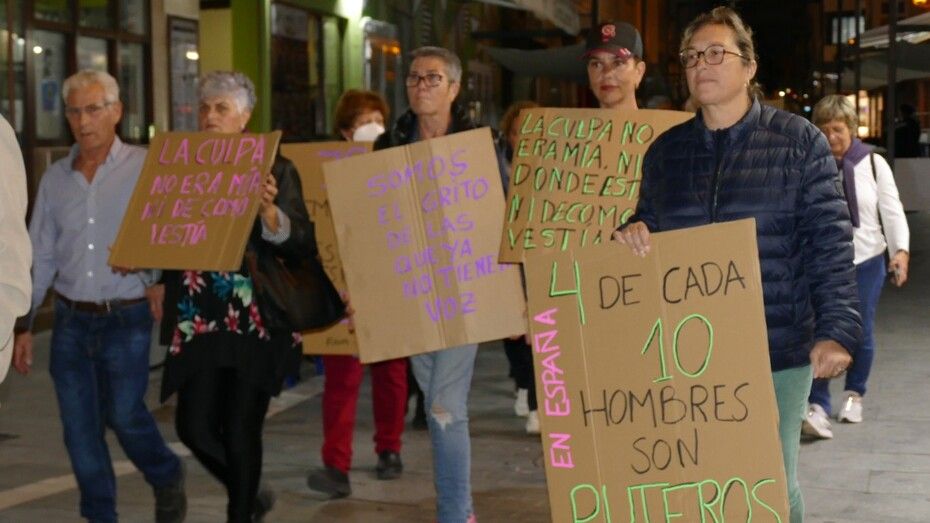 LA CULPA
NO ERA MÍA
NI DE COMO
VESTÍA
SOMOS
EL GRITO
DE LAS
QUE YA
NO TIENEN
VOZ
LA CULPA NO
ERA MÍA. NI
DONDE ESTA
NI DE COMO
VESTIA
EN ESPAÑA
4 DE CADA
10
HOMBRES
SON
PUTEROS